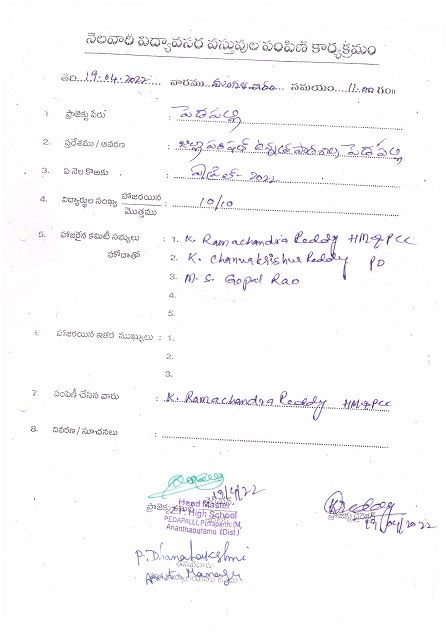 నెలవారీ విద్యావసర వస్తువుల పంపిణి కార్యక్రమం
తేది..19.04.2022...... వారము..మంగళవారం... సమయం...11.00 గం॥
1. ప్రాజెక్టు పేరు : పెడపల్లి
2. ప్రదేశము / ఆవరణ : జిల్లా పరిషత్ ఉన్నత పాఠశాల, పెడపల్లి
3. ఏ నెల కొఱకు : ఏప్రిల్ - 2022
4. విద్యార్థుల సంఖ్య హాజరయిన / మొత్తము : 10/10
5. హాజరైన కమిటీ సభ్యులు : 1. K. Ramachandra Reddy HM & PCC
హోదాతో 2. K. Channakrishna Reddy PD
3. M. S. Gopal Rao
4.
5.
6. హాజరయిన ఇతర ముఖ్యులు : 1.
2.
3.
7. పంపిణీ చేసిన వారు : K. Ramachandra Reddy HM & PCC
8. వివరణ / సూచనలు :
19/4/22
ప్రాజెక్టు
Head Master
Z.P. High School
PEDAPALLI, Puttaparthi (M),
Ananthapuramu (Dist.)
19/04/2022
P. Dhanalakshmi
Asst Manager